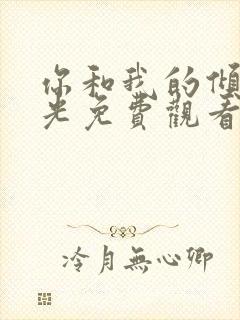 你和我的傾
光免費觀看
冷月無心卿